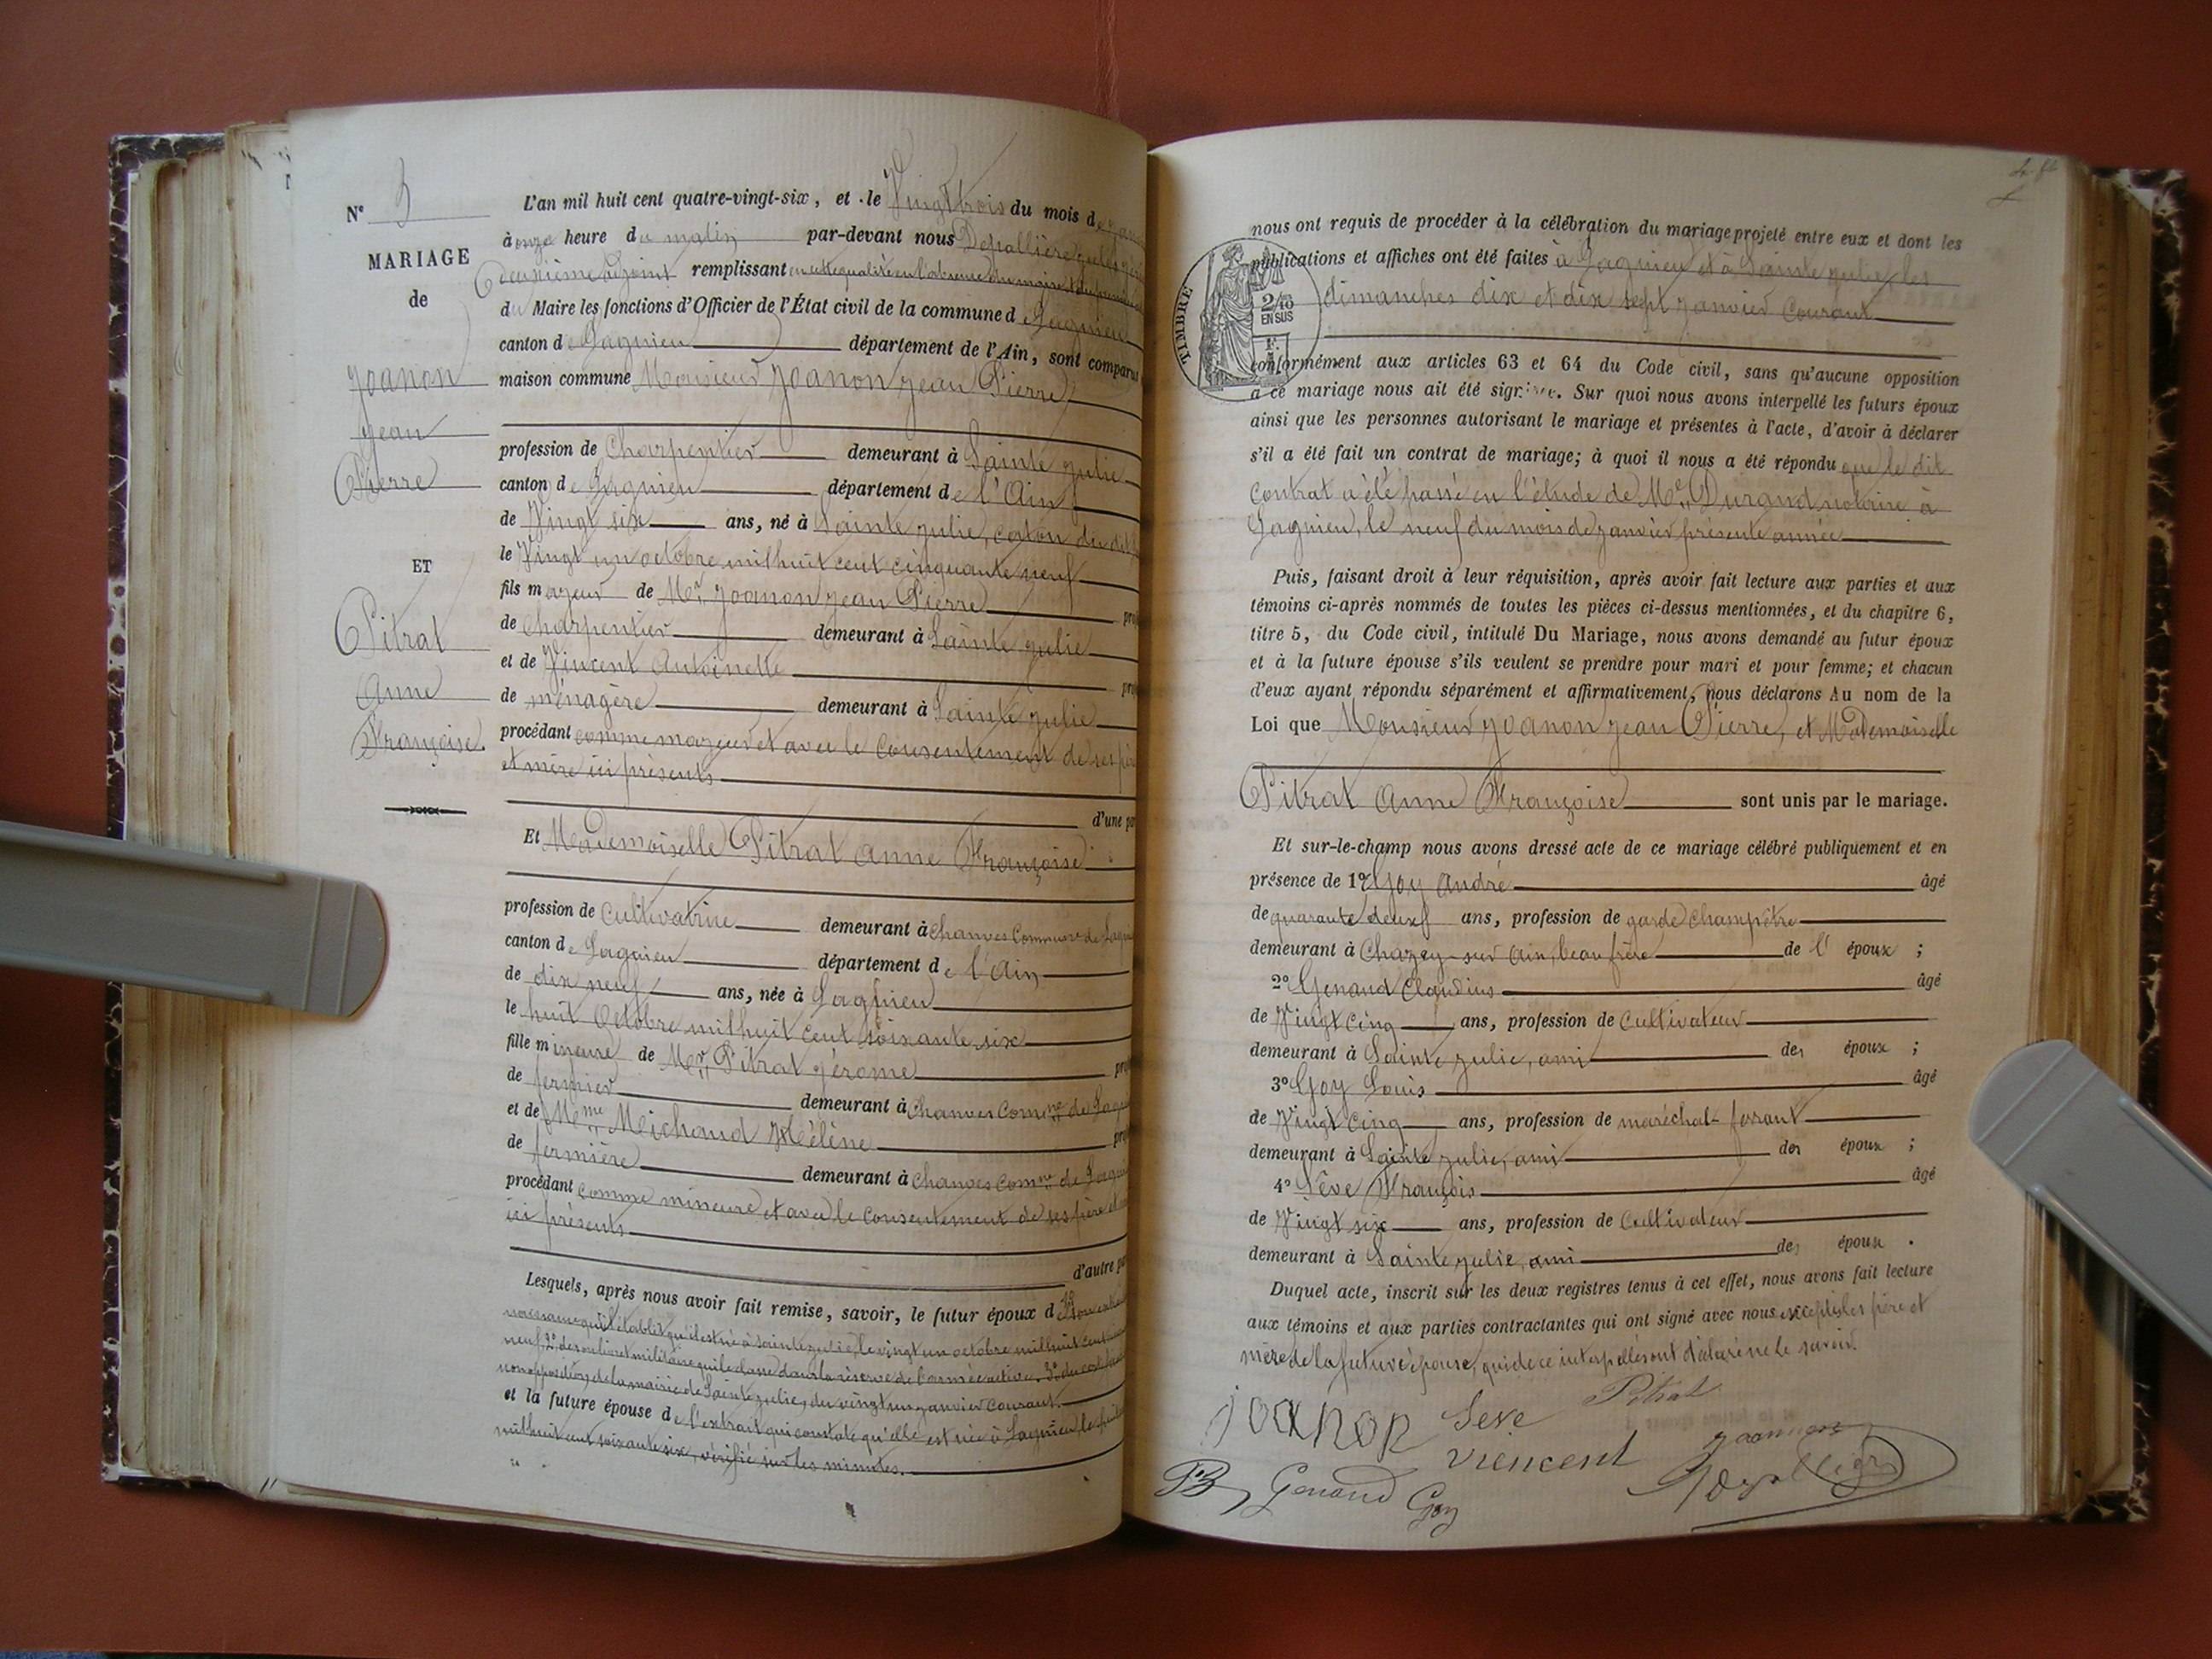 N° 3
MARIAGE
de
Joanon
Jean
Pierre
ET
Pitrat
Anne
Françoise.
L'an mil huit cent quatre-vingt-six, et le Vingt trois du mois de
à onze heure du matin par-devant nous Depallière
deuxième adjoint remplissant en cette qualité en l'absence du maire et du premier
du Maire les fonctions d'Officier de l'État civil de la commune de Lagnieu
canton de Lagnieu département de l'Ain, sont comparus
maison commune Monsieur Joanon Jean Pierre
profession de Charpentier demeurant à Sainte Julie
canton de Lagnieu département de l'Ain
de Vingt six ans, né à Sainte Julie, canton du dit
le Vingt un octobre mil huit cent cinquante neuf
fils majeur de Mr Joanon Jean Pierre
de Charpentier demeurant à Sainte Julie
et de Vincent Antoinette
de ménagère demeurant à Sainte Julie
procédant comme majeur et avec le consentement de ses père
et mère ici présents
d'une
Et Mademoiselle Pitrat Anne Françoise
profession de Cultivatrice demeurant à Chanves Commune de
canton de Lagnieu département de l'Ain
de dix neuf ans, née à Lagnieu
le huit Octobre mil huit cent soixante six
fille mineure de Mr Pitrat Jérome
de fermier demeurant à Chanves Comne de
et de Mme Michaud Hélène
de fermière demeurant à Chanves Comne de
procédant comme mineure et avec le consentement de ses père et
ici présents
d'autre
Lesquels, après nous avoir fait remise, savoir, le futur époux de 1° son
naissance qui établit qu'il est né à Sainte Julie, le vingt un octobre mil huit cent
neuf, 2° de son livret militaire qui le classe dans la réserve de l'armée active. 3° du
non opposition de la mairie de Sainte Julie, du vingt un janvier courant.
et la future épouse de l'extrait qui constate qu'elle est née à Lagnieu, le huit
mil huit cent soixante six, vérifié sur les minutes.
nous ont requis de procéder à la célébration du mariage projeté entre eux et dont les
publications et affiches ont été faites à Lagnieu et à Sainte Julie, les
dimanches dix et dix sept janvier courant
TIMBRE
2/10
EN SUS
conformément aux articles 63 et 64 du Code civil, sans qu'aucune opposition
à ce mariage nous ait été signifiée. Sur quoi nous avons interpellé les futurs époux
ainsi que les personnes autorisant le mariage et présentes à l'acte, d'avoir à déclarer
s'il a été fait un contrat de mariage; à quoi il nous a été répondu que le dit
Contrat a été passé en l'étude de Me Durand, notaire à
Lagnieu, le neuf du mois de janvier présente année
Puis, faisant droit à leur réquisition, après avoir fait lecture aux parties et aux
témoins ci-après nommés de toutes les pièces ci-dessus mentionnées, et du chapitre 6,
titre 5, du Code civil, intitulé Du Mariage, nous avons demandé au futur époux
et à la future épouse s'ils veulent se prendre pour mari et pour femme; et chacun
d'eux ayant répondu séparément et affirmativement, nous déclarons Au nom de la
Loi que Monsieur Joanon Jean Pierre, et Mademoiselle
Pitrat Anne Françoise sont unis par le mariage.
Et sur-le-champ nous avons dressé acte de ce mariage célébré publiquement et en
présence de 1° Goy André âgé
de quarante deux ans, profession de garde champêtre
demeurant à Chazey-sur Ain, beau frère de l' époux ;
2° Genaud Claudius âgé
de Vingt cinq ans, profession de Cultivateur
demeurant à Sainte Julie, ami des époux ;
3° Goy Louis âgé
de Vingt cinq ans, profession de maréchal-ferrant
demeurant à Sainte Julie, ami des époux ;
4° Sève François âgé
de Vingt six ans, profession de Cultivateur
demeurant à Sainte Julie, ami des époux .
Duquel acte, inscrit sur les deux registres tenus à cet effet, nous avons fait lecture
aux témoins et aux parties contractantes qui ont signé avec nous exceptés les père et
mère de la future épouse, qui de ce interpellés ont déclaré ne le savoir.
Joanon Seve Pitrat
viencent
Genaud Goy